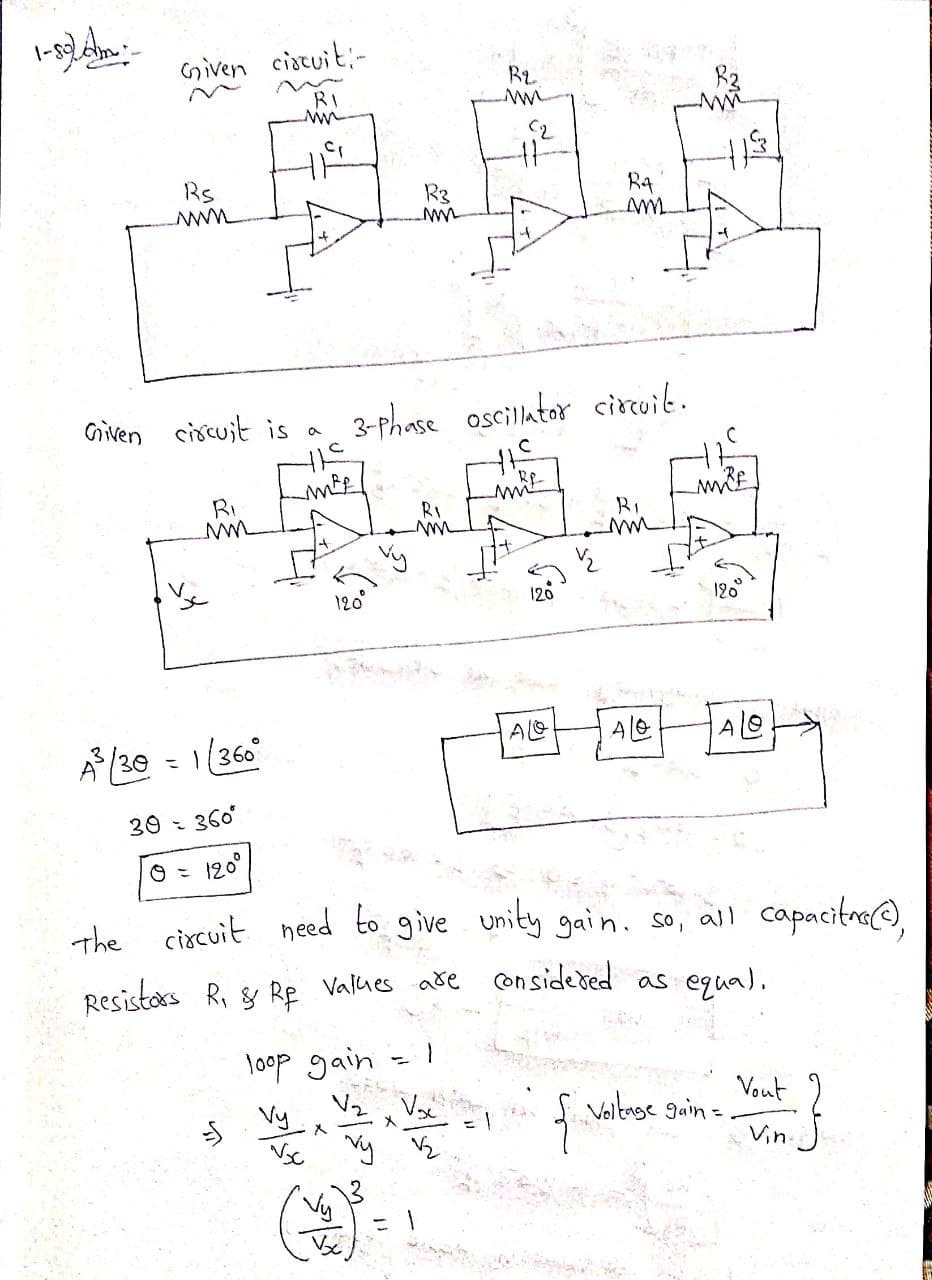 1-sol Ans:-
Given circuit:-
R1
C1
R5
R2
C2
R3
R3
C3
R4
- +
- +
- +
Given circuit is a 3-Phase oscillator circuit.
C
Rf
R1
C
Rf
R1
C
Rf
R1
- +
- +
- +
Vx
Vy
Vz
120°
120°
120°
A∠θ
A∠θ
A∠θ
A³∠3θ = 1∠360°
3θ = 360°
θ = 120°
The circuit need to give unity gain. so, all capacitors(c),
Resistors R1 & Rf Values are considered as equal.
loop gain = 1
⇒ Vy/Vx × Vz/Vy × Vx/Vz = 1 { Voltage gain = Vout/Vin }
(Vy/Vx)³ = 1